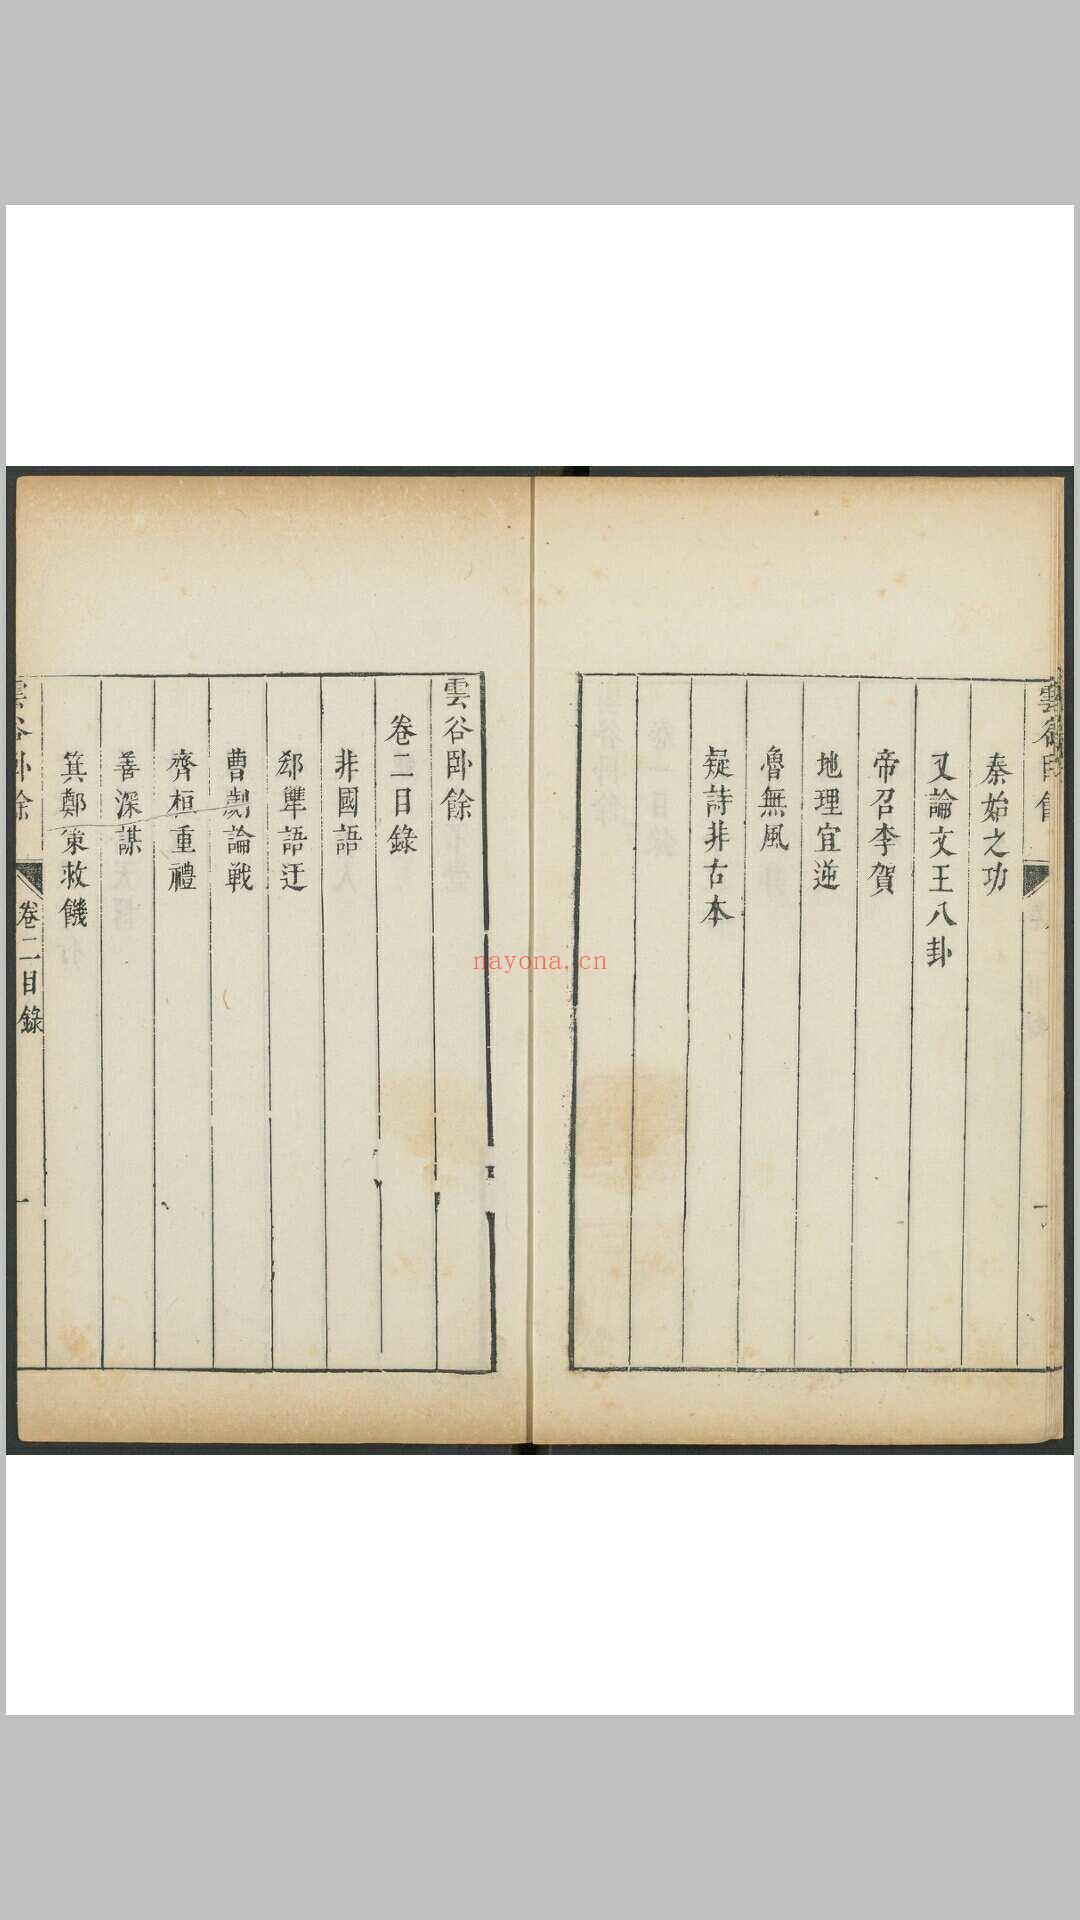 雲谷卧餘
秦始之功
又論文王八卦
帝召李賀
地理宜逆
魯無風
疑詩非古本
雲谷卧餘
卷二目錄
非國語
郄犨語迂
曹劌論戰
齊桓重禮
善深謀
箕鄭策救饑
雲谷卧餘
卷二目錄
一
nayona.cn